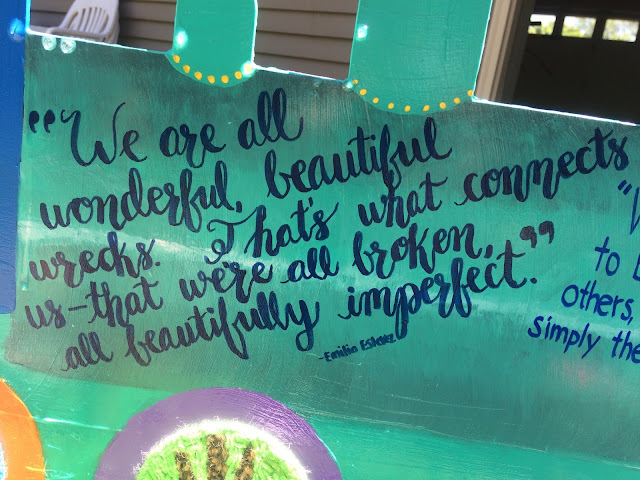 "We are all
wonderful, beautiful
wrecks. That's what connects
us—that we're all broken,
all beautifully imperfect."
-Emilio Estevez
to
others,
simply the